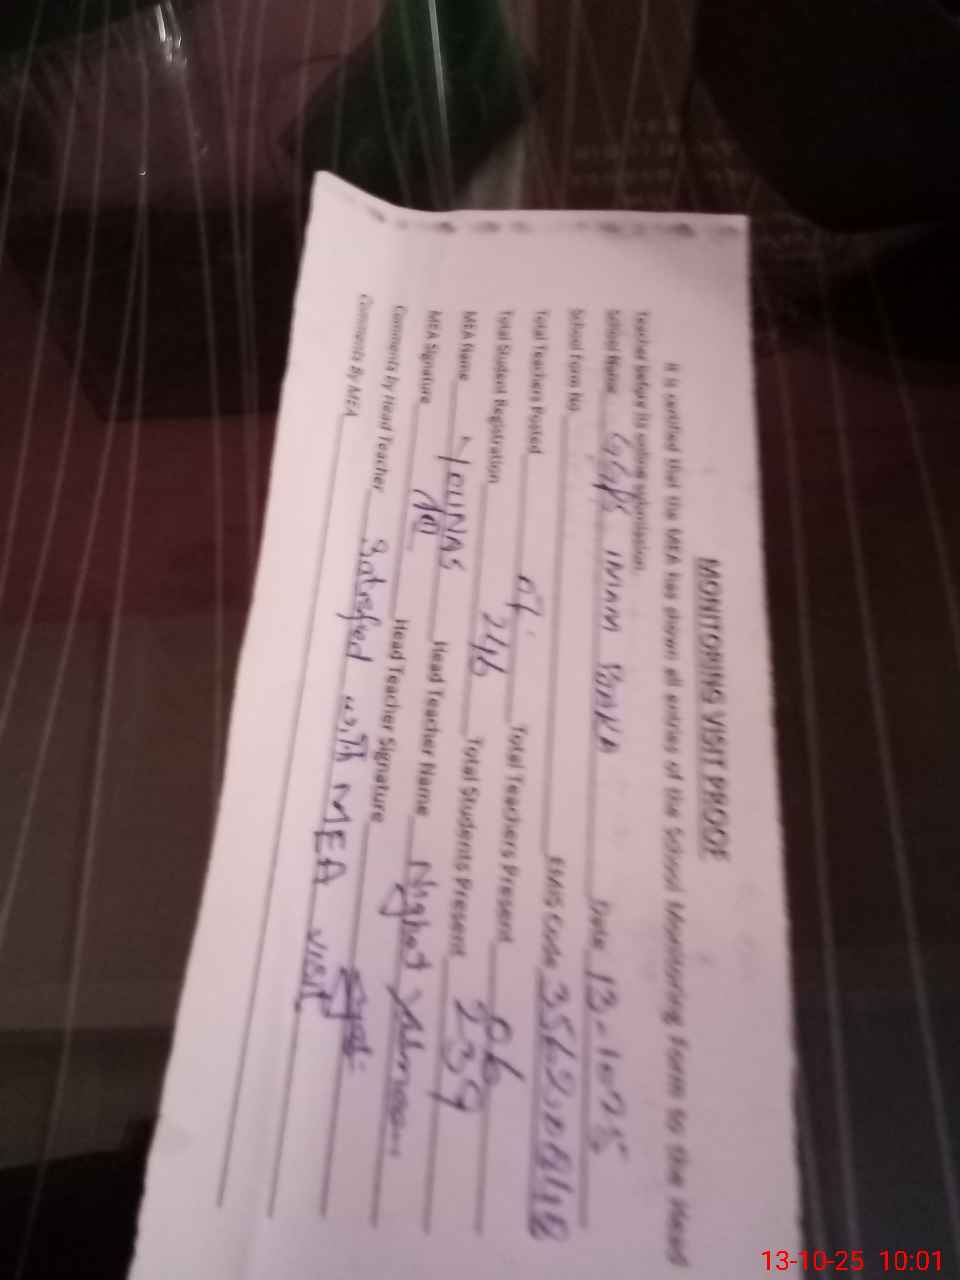 MONITORING VISIT PROOF
It is certified that the MEA has shown all entries of the School Monitoring Form to the Head
Teacher before its online submission.
School Name GGPS IMAM Date 13-10-25
School Form No EMIS Code
Total Teachers Posted Total Teachers Present
Total Student Registration 246 Total Students Present 239
MEA Name YOUNAS Head Teacher Name Nighat
MEA Signature Head Teacher Signature
Comments by Head Teacher Satisfied with MEA visit
Comments By MEA
13-10-25 10:01